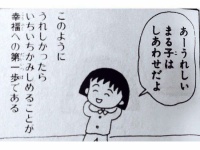 あーうれしい
まる子は
しあわせだよ
このように
うれしかったら
いちいちかみしめることが
幸福への第一歩である